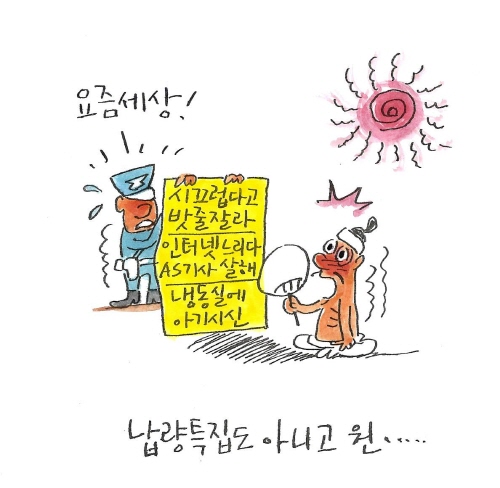 요즘세상!
시끄럽다고
밧줄잘라
인터넷느리다
AS기사 살해
냉동실에
아기시신
납량특집도 아니고 원.....